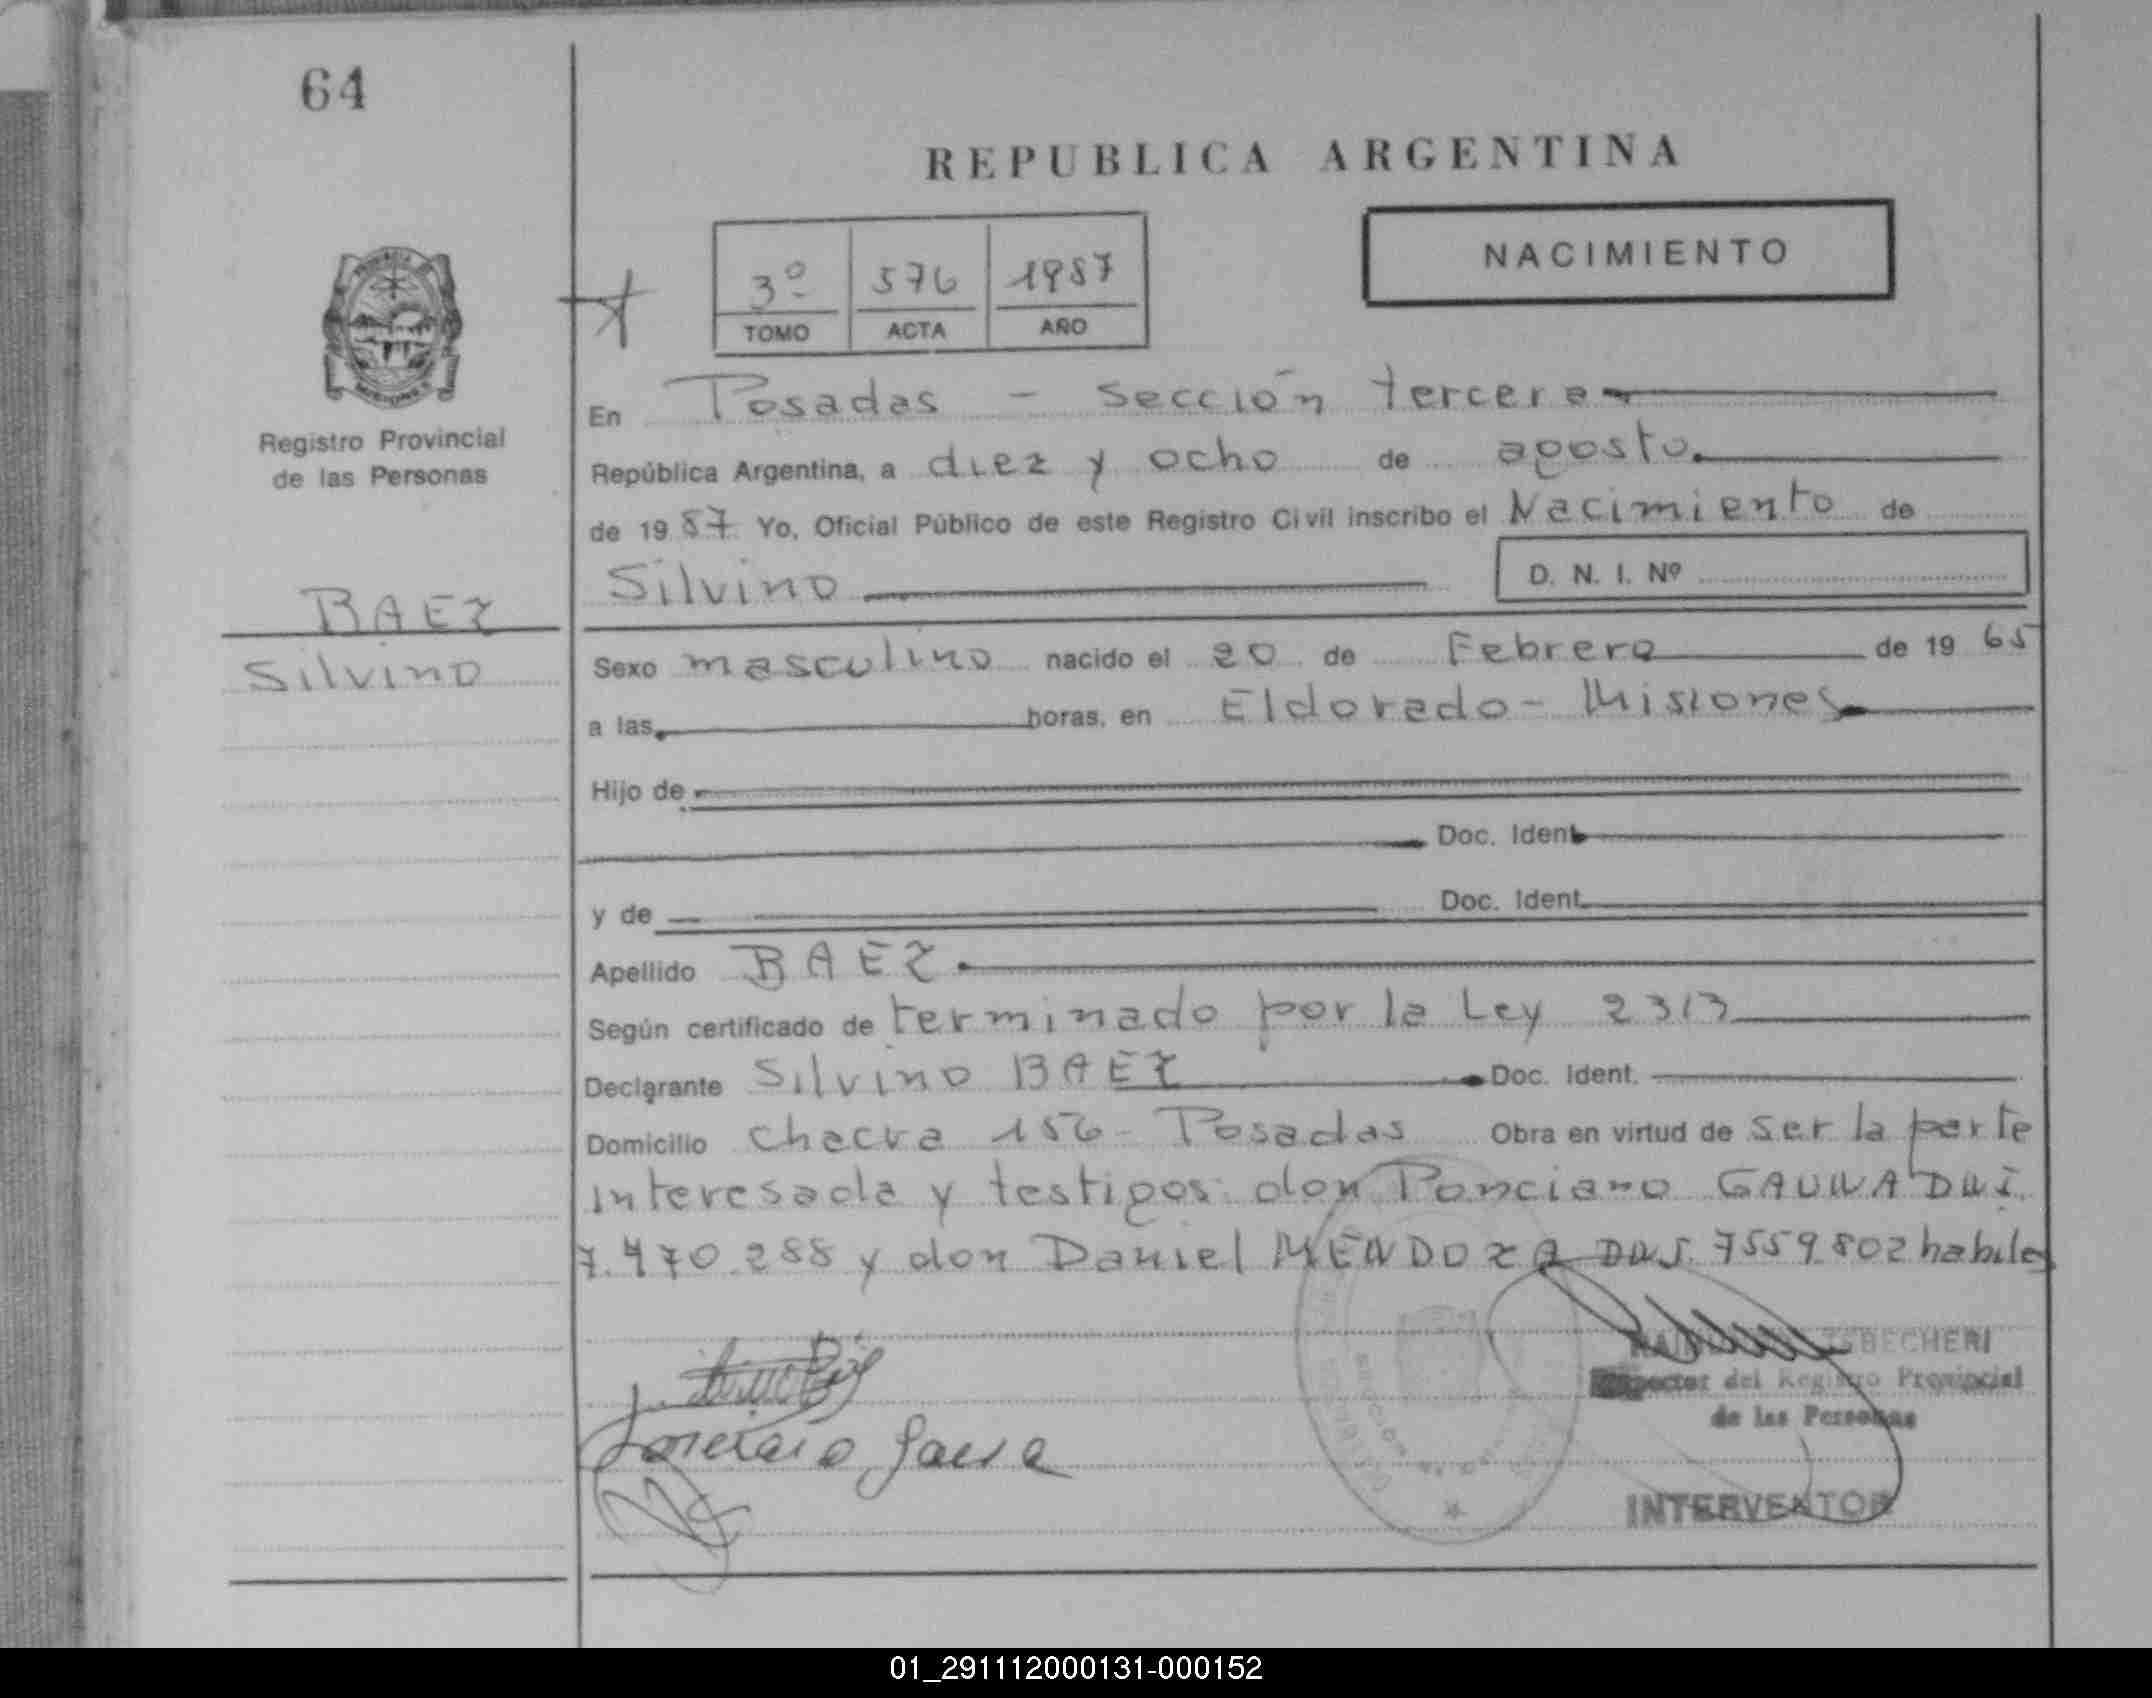 64
REPUBLICA ARGENTINA
NACIMIENTO
3º 576 1987
TOMO ACTA AÑO
Registro Provincial
de las Personas
BAEZ
Silvino
En Posadas - sección tercera
República Argentina, a diez y ocho de agosto
de 1987 Yo, Oficial Público de este Registro Civil inscribo el Nacimiento de
Silvino D. N. I. Nº
Sexo masculino nacido el 20 de Febrero de 1965
a las horas, en Eldorado - Misiones
Hijo de
Doc. Ident.
y de Doc. Ident.
Apellido BAEZ
Según certificado de terminado por la Ley 2313
Declarante Silvino BAEZ Doc. Ident.
Domicilio Chacra 156 - Posadas Obra en virtud de ser la parte
interesada y testigos: don Ponciano GAUNA DNI
7.470.288 y don Daniel MENDOZA DNI. 7559.802 habiles
del Registro Provincial
de las Personas
INTERVENTOR
01_291112000131-000152